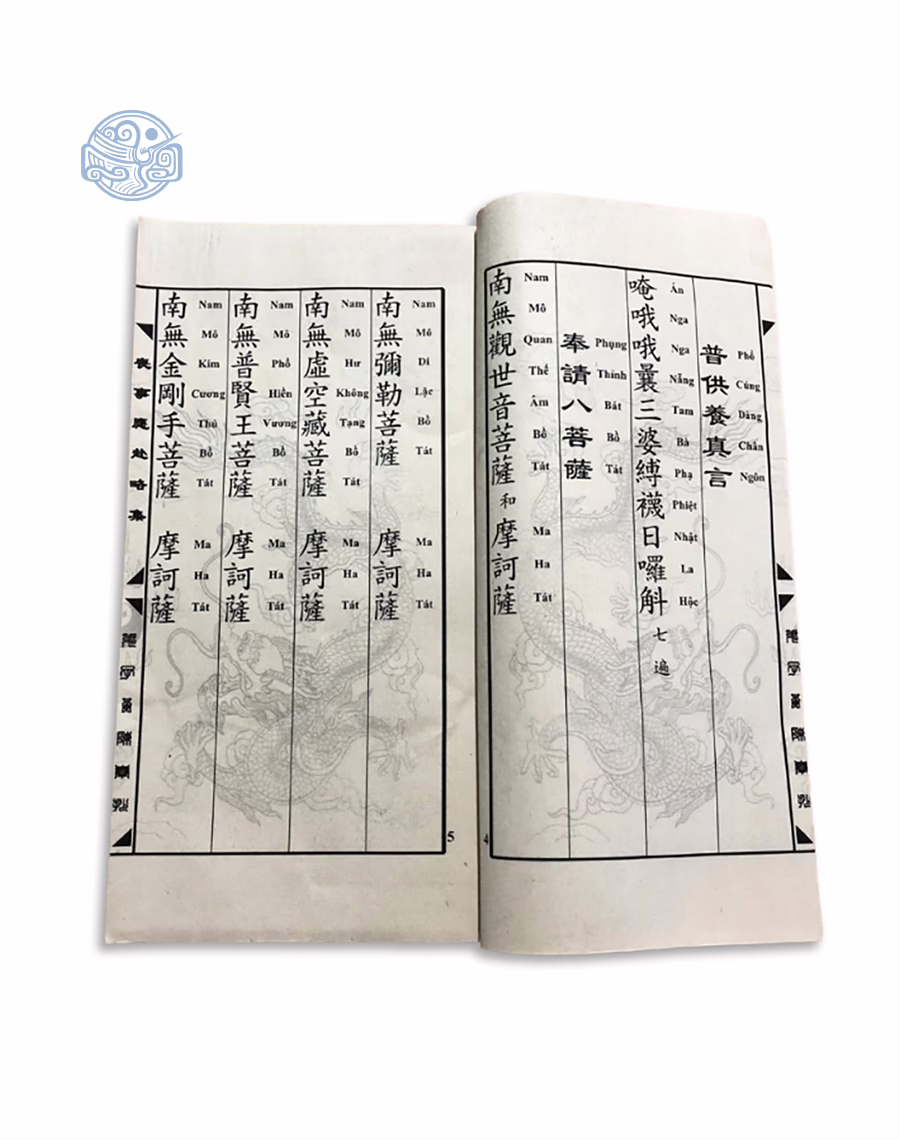 普供養真言
Phổ Cúng Dàng Chân Ngôn
唵哦哦曩三婆縛襪日囉斛 七遍
Án Nga Nga Nẵng Tam Bà Phạ Phiệt Nhật La Hộc
奉請八菩薩
Phụng Thỉnh Bát Bồ Tát
南無觀世音菩薩 和 摩訶薩
Nam Mô Quan Thế Âm Bồ Tát Ma Ha Tát
4
南無彌勒菩薩 摩訶薩
Nam Mô Di Lặc Bồ Tát Ma Ha Tát
南無虛空藏菩薩 摩訶薩
Nam Mô Hư Không Tạng Bồ Tát Ma Ha Tát
南無普賢王菩薩 摩訶薩
Nam Mô Phổ Hiền Vương Bồ Tát Ma Ha Tát
南無金剛手菩薩 摩訶薩
Nam Mô Kim Cương Thủ Bồ Tát Ma Ha Tát
喪事應赴略集
5